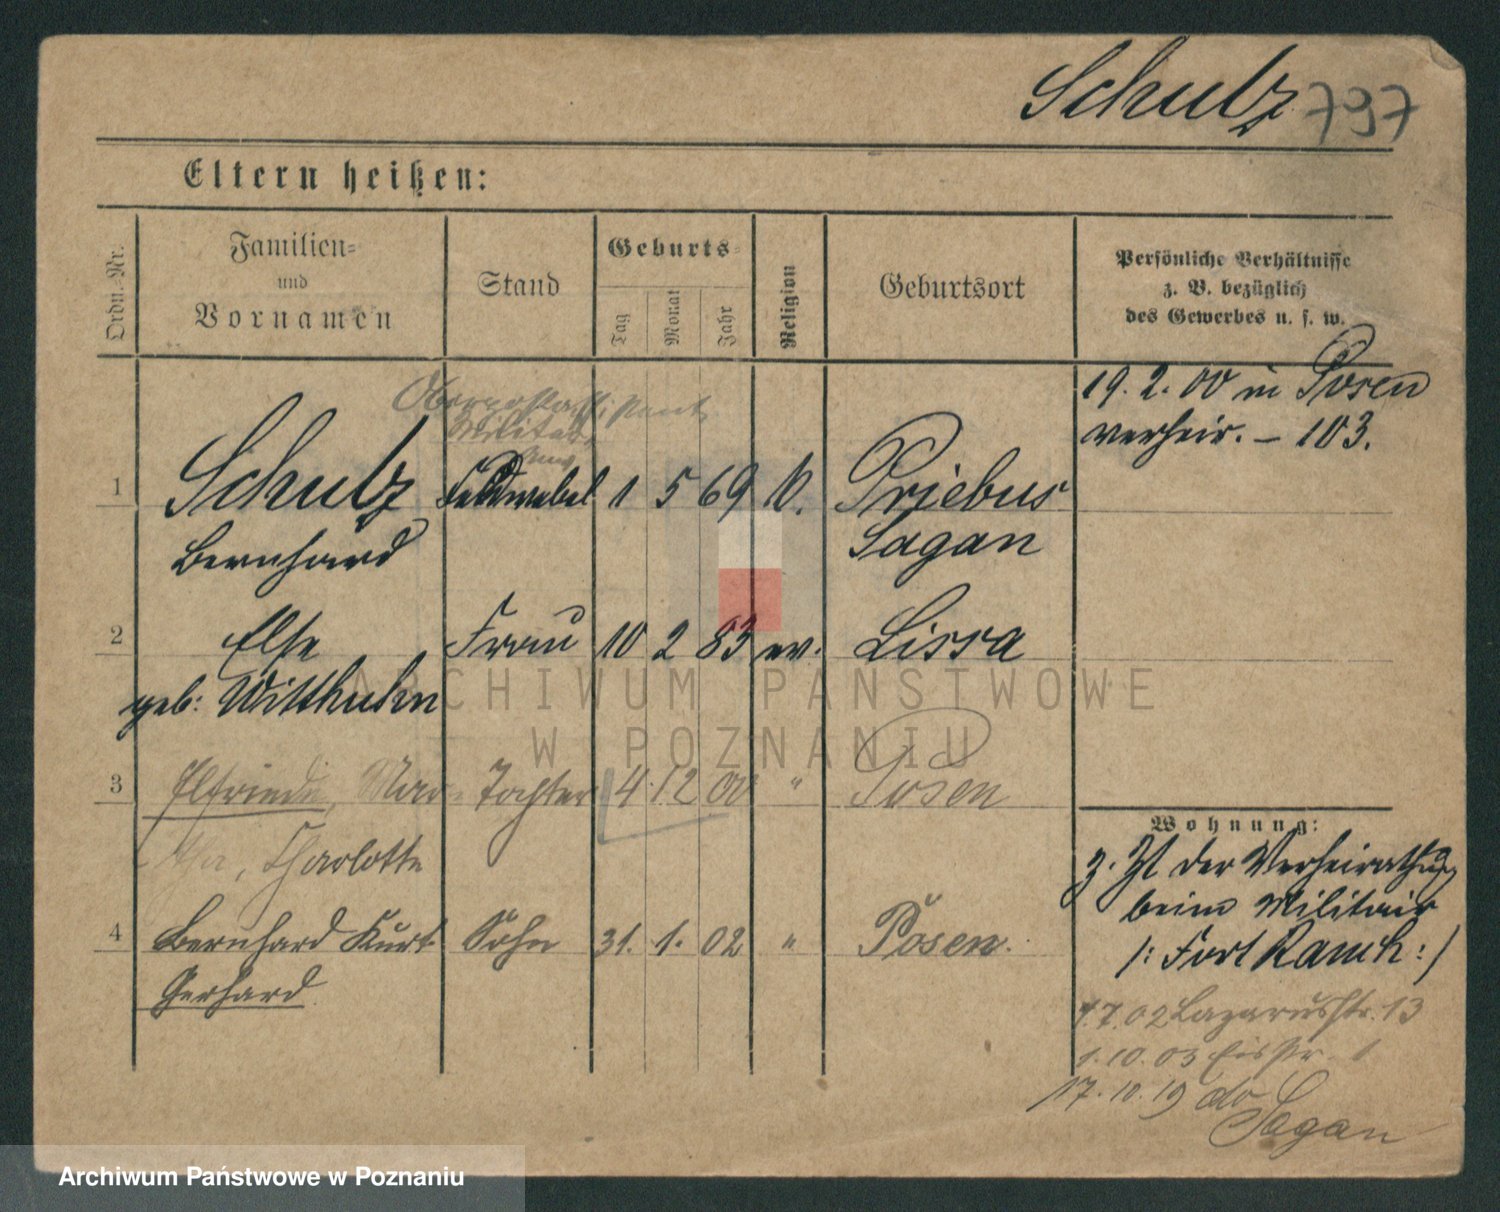 Schulz 797
Eltern heißen:
Ordn.-Nr.
Familien-
und
Vornamen
Stand
Geburts-
Tag
Monat
Jahr
Religion
Geburtsort
Persönliche Verhältnisse
z. B. bezüglich
des Gewerbes u. s. w.
19. 2. 00 in Posen
verheir. – 103.
Oberpostassistent
Militär
1 Schulz Feldwebel 1 5 69 k. Priebus
Bernhard Sagan
2 Else Frau 10 2 83 ev. Lissa
geb: Witthuhn
3 Elfriede, Mar- Tochter 4 12 00 " Posen
tha, Charlotte
4 Bernhard Kurt Sohn 31. 1. 02 " Posen.
Gerhard
Wohnung:
z. Zt der Verheirathung
beim Militair
/: Fort Rauch :/
1.7.02 Lazarusstr. 13
1.10.03 1
17.10.19 do
Sagan
ARCHIWUM PAŃSTWOWE
W POZNANIU
Archiwum Państwowe w Poznaniu